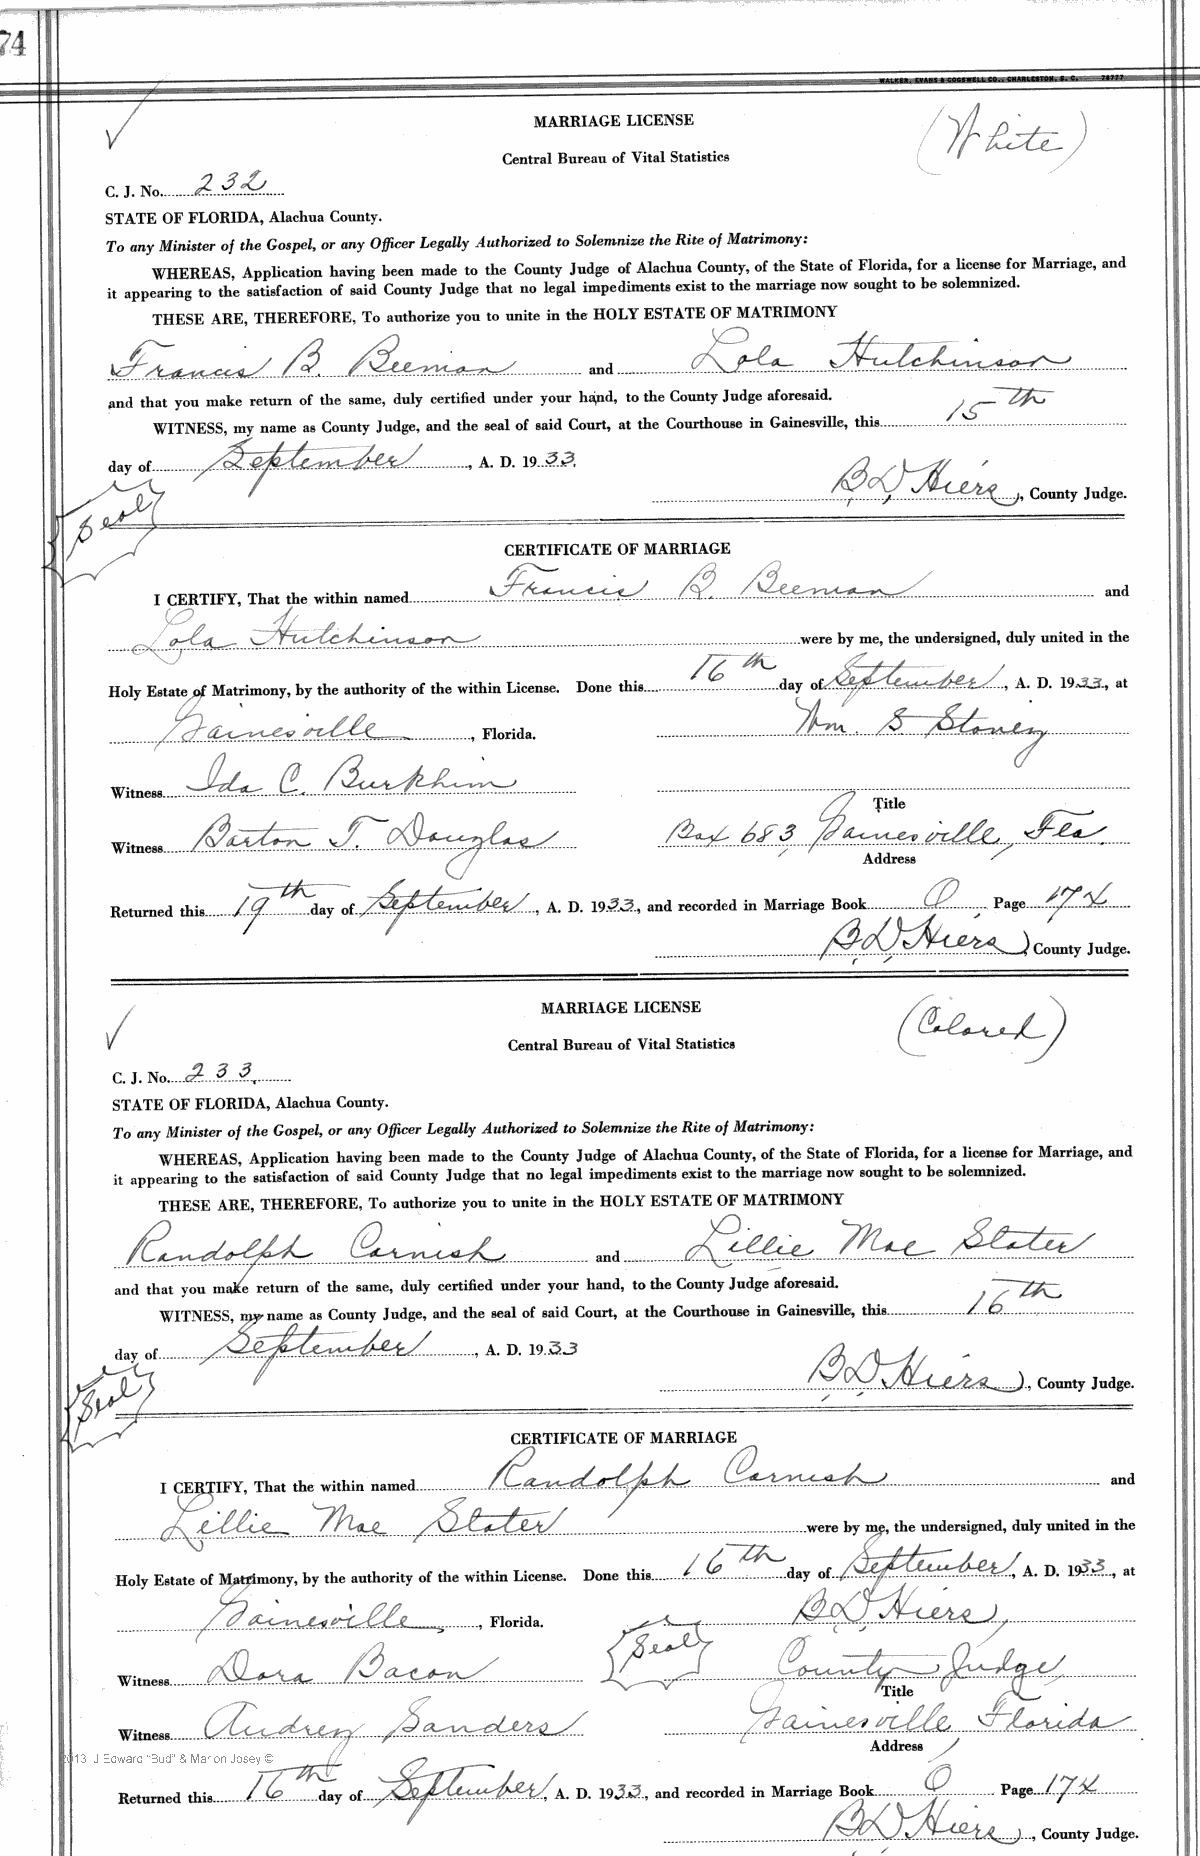 74
WALKER, EVANS & COGSWELL CO., CHARLESTON, S. C. 78777
MARRIAGE LICENSE
(White)
Central Bureau of Vital Statistics
C. J. No. 232
STATE OF FLORIDA, Alachua County.
To any Minister of the Gospel, or any Officer Legally Authorized to Solemnize the Rite of Matrimony:
WHEREAS, Application having been made to the County Judge of Alachua County, of the State of Florida, for a license for Marriage, and
it appearing to the satisfaction of said County Judge that no legal impediments exist to the marriage now sought to be solemnized.
THESE ARE, THEREFORE, To authorize you to unite in the HOLY ESTATE OF MATRIMONY
Francis B. Beeman and Lola Hutchinson
and that you make return of the same, duly certified under your hand, to the County Judge aforesaid.
WITNESS, my name as County Judge, and the seal of said Court, at the Courthouse in Gainesville, this 15th
day of September, A. D. 1933.
B.D. Hiers, County Judge.
Seal
CERTIFICATE OF MARRIAGE
I CERTIFY, That the within named Francis B. Beeman and
Lola Hutchinson were by me, the undersigned, duly united in the
Holy Estate of Matrimony, by the authority of the within License. Done this 16th day of September, A. D. 1933, at
Gainesville, Florida. Wm. S Stoney
Witness Ida C. Burkhim
Title
Witness Barton T. Douglas Box 683, Gainesville, Fla.
Address
Returned this 19th day of September, A. D. 1933, and recorded in Marriage Book O, Page 174
B.D. Hiers, County Judge.
MARRIAGE LICENSE
(Colored)
Central Bureau of Vital Statistics
C. J. No. 233.
STATE OF FLORIDA, Alachua County.
To any Minister of the Gospel, or any Officer Legally Authorized to Solemnize the Rite of Matrimony:
WHEREAS, Application having been made to the County Judge of Alachua County, of the State of Florida, for a license for Marriage, and
it appearing to the satisfaction of said County Judge that no legal impediments exist to the marriage now sought to be solemnized.
THESE ARE, THEREFORE, To authorize you to unite in the HOLY ESTATE OF MATRIMONY
Randolph Cornish and Lillie Mae Slater
and that you make return of the same, duly certified under your hand, to the County Judge aforesaid.
WITNESS, my name as County Judge, and the seal of said Court, at the Courthouse in Gainesville, this 16th
day of September, A. D. 1933
B.D. Hiers, County Judge.
Seal
CERTIFICATE OF MARRIAGE
I CERTIFY, That the within named Randolph Cornish and
Lillie Mae Slater were by me, the undersigned, duly united in the
Holy Estate of Matrimony, by the authority of the within License. Done this 16th day of September, A. D. 1933, at
Gainesville, Florida. B.D. Hiers,
Seal
Witness Dora Bacon County Judge,
Title
Witness Audrey Sanders Gainesville, Florida
Address
2013 J Edward "Bud" & Marion Josey ©
Returned this 16th day of September, A. D. 1933, and recorded in Marriage Book O Page 174
B.D. Hiers, County Judge.